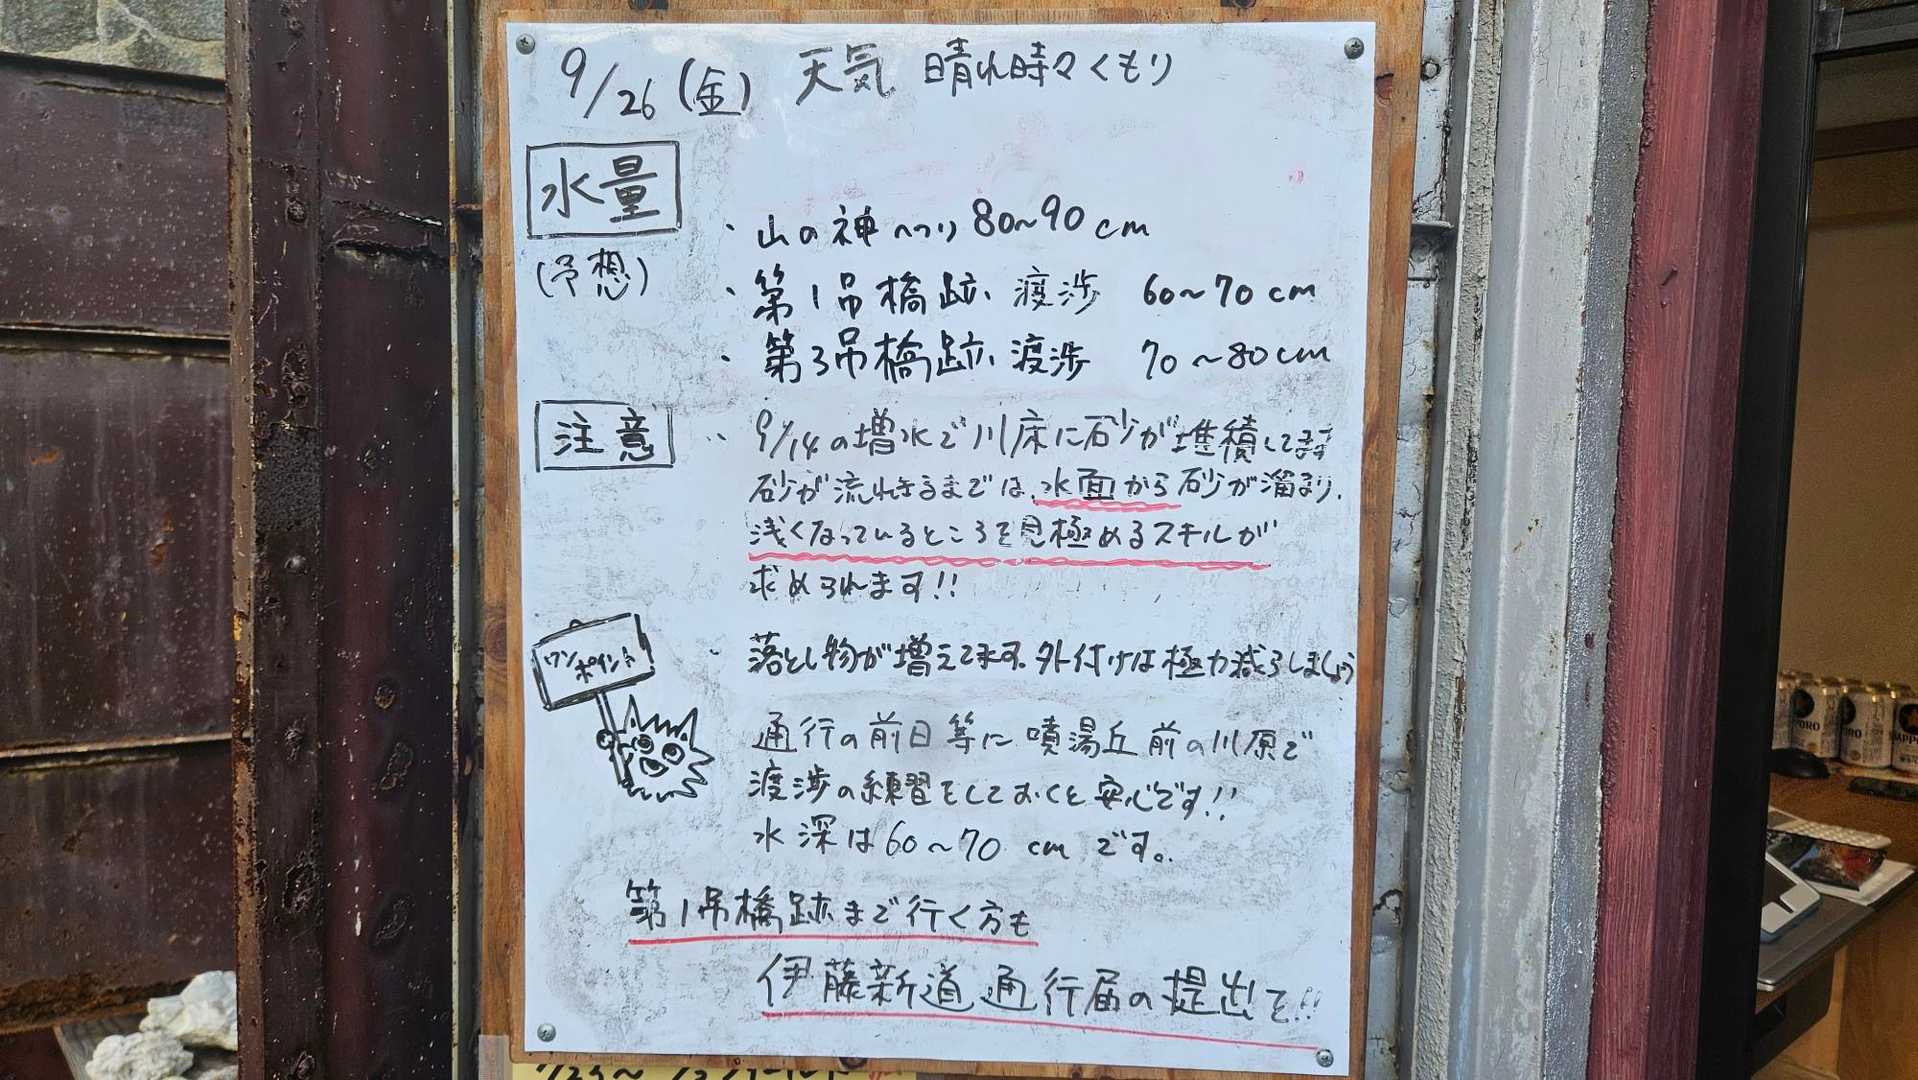 9/26(金) 天気 晴れ時々くもり
水量
(予想)
・山の神へつり 80~90cm
・第1吊橋跡 渡渉 60~70cm
・第3吊橋跡 渡渉 70~80cm
注意
・9/14の増水で川床に石砂が堆積してます
砂が流れきるまでは、水面から砂が溜まり、
浅くなっているところを見極めるスキルが
求められます!!
ワンポイント
・落とし物が増えてます。外付けは極力減らしましょう
通行の前日等に噴湯丘前の川原で
渡渉の練習をしておくと安心です!!
水深は60~70cmです。
第1吊橋跡まで行く方も
伊藤新道通行届の提出を!!
SAPPORO